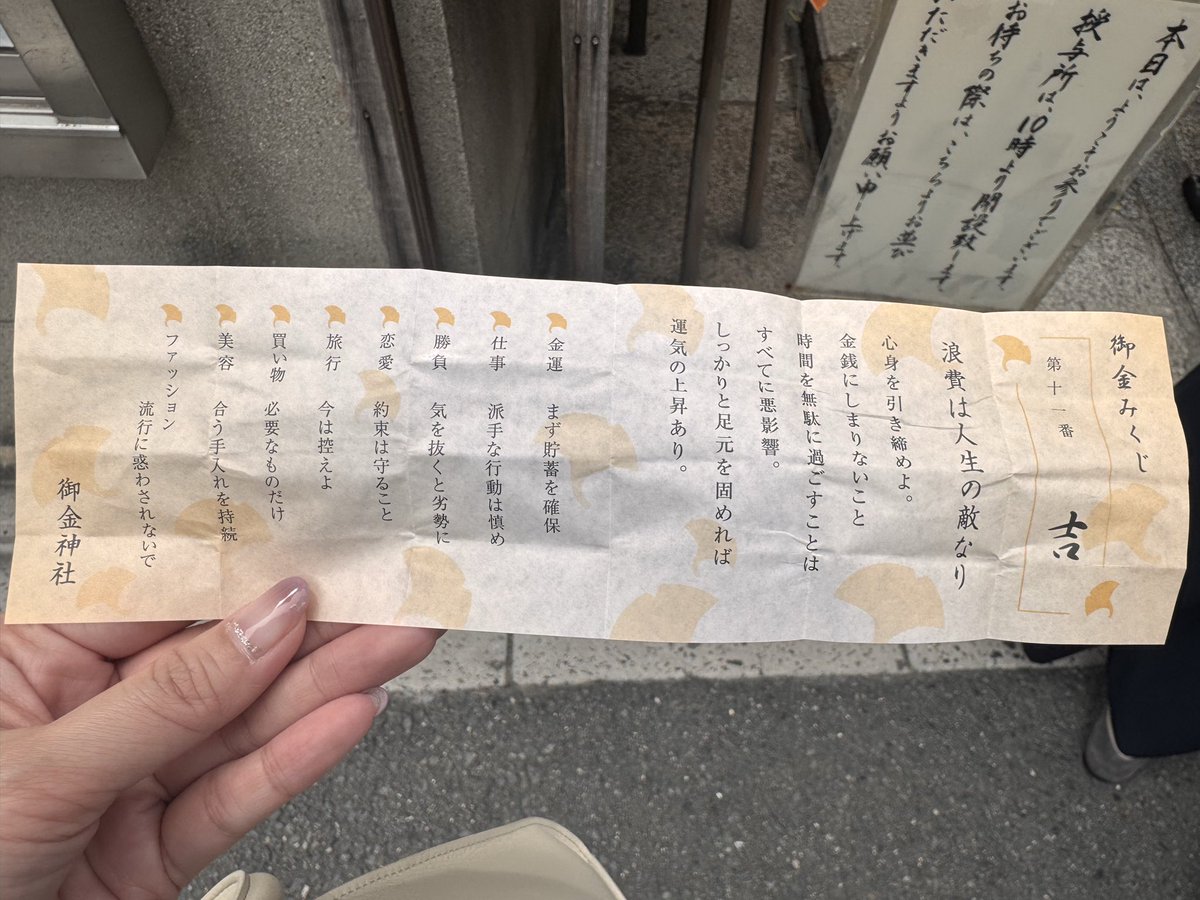 御金みくじ
第十一番
吉
浪費は人生の敵なり
心身を引き締めよ。
金銭にしまりないこと
時間を無駄に過ごすことは
すべてに悪影響。
しっかりと足元を固めれば
運気の上昇あり。
金運 まず貯蓄を確保
仕事 派手な行動は慎め
勝負 気を抜くと劣勢に
恋愛 約束は守ること
旅行 今は控えよ
買い物 必要なものだけ
美容 合う手入れを持続
ファッション 流行に惑わされないで
御金神社
本日は、ようこそお参りでございます
授与所は、10時より開設致します
お待ちの際は、こちらよりお並び
いただきますようお願い申し上げます